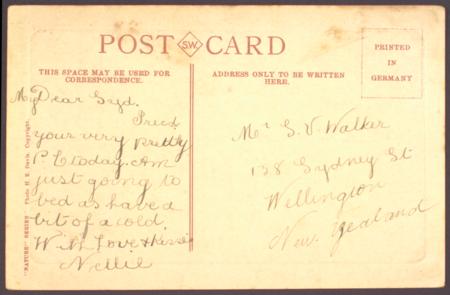 POST SW CARD
THIS SPACE MAY BE USED FOR
CORRESPONDENCE.
ADDRESS ONLY TO BE WRITTEN
HERE.
PRINTED
IN
GERMANY
My Dear Syd.
Recd
your very pretty
P.C today. Am
just going to
bed as have a
bit of a cold.
With love & kisses
Nellie
Mr S. V. Walker
138 Sydney St
Wellington
New Zealand
"NATURE" SERIES Photo H. E. Davis Copyright.